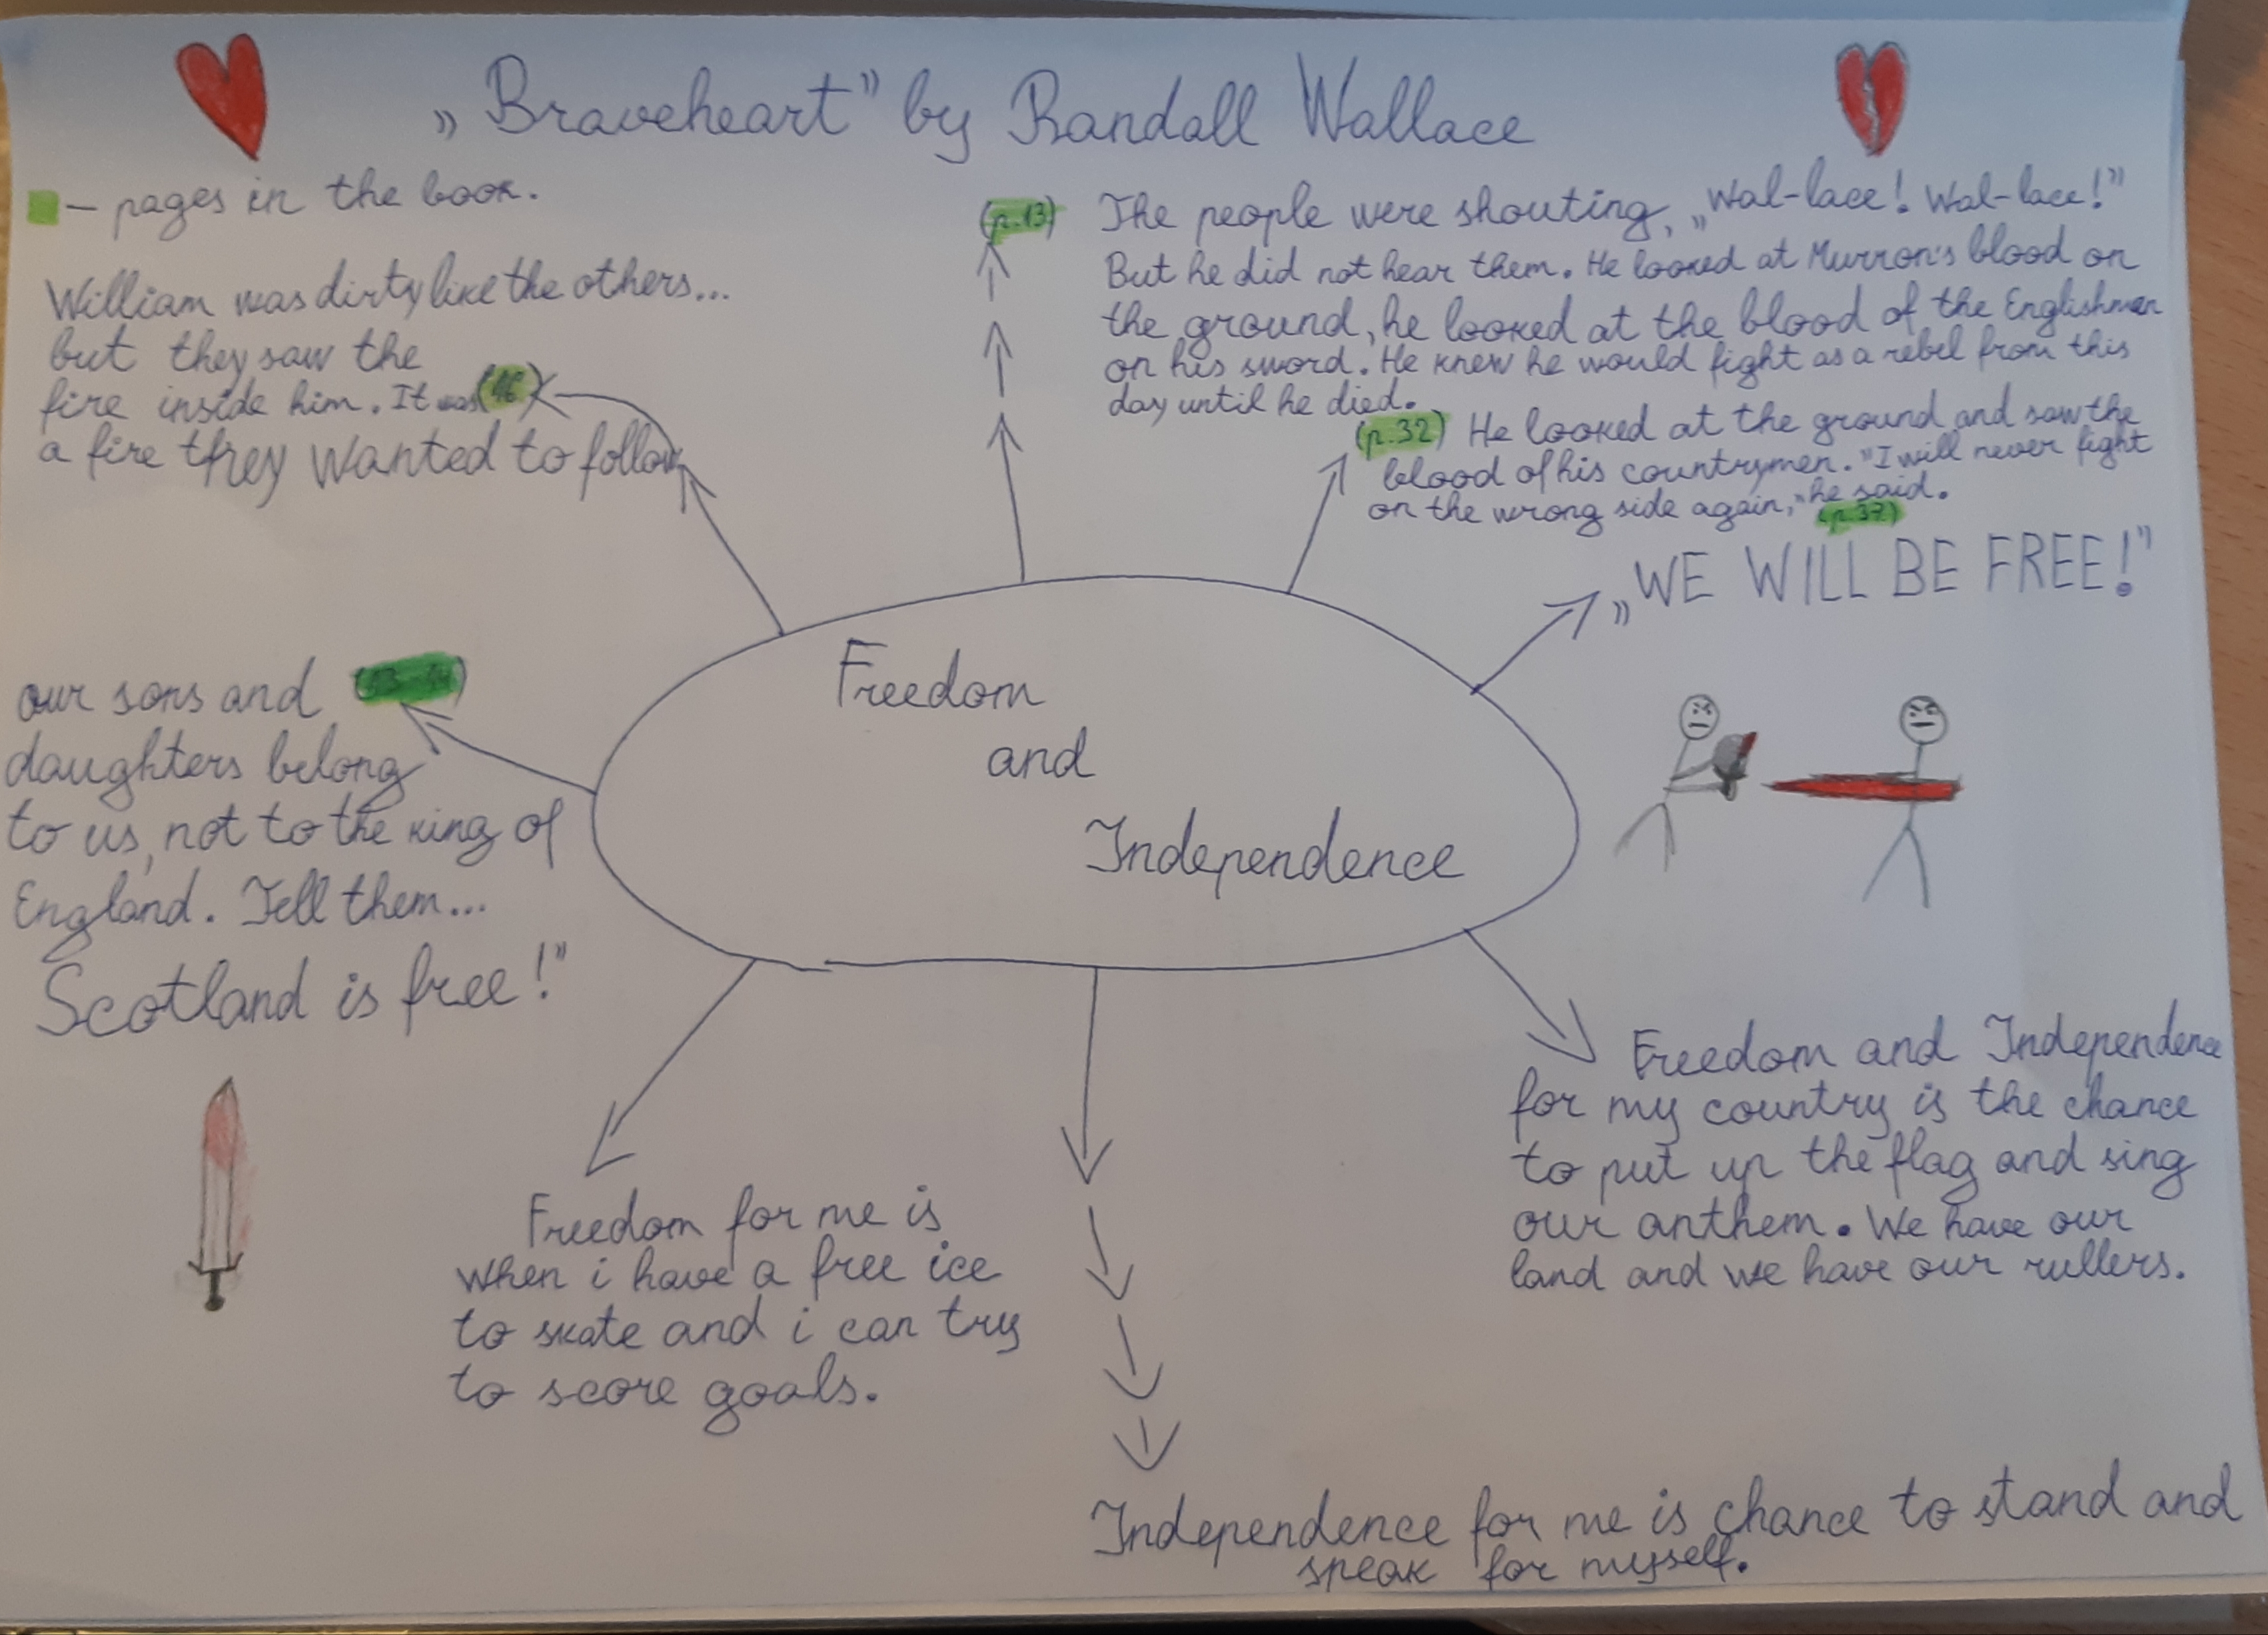 „Braveheart” by Randall Wallace
– pages in the book.
William was dirty like the others...
but they saw the
fire inside him. It was (46)
a fire they wanted to follow
(p.13) The people were shouting, „Wal-lace! Wal-lace!”
But he did not hear them. He looked at Murron's blood on
the ground, he looked at the blood of the Englishman
on his sword. He knew he would fight as a rebel from this
day until he died.
(p.32) He looked at the ground and saw the
blood of his countrymen. "I will never fight
on the wrong side again," he said.
(p.37)
„WE WILL BE FREE!”
our sons and
daughters belong
to us, not to the king of
England. Tell them...
Scotland is free!”
Freedom
and
Independence
Freedom for me is
when i have a free ice
to skate and i can try
to score goals.
Freedom and Independence
for my country is the chance
to put up the flag and sing
our anthem. We have our
land and we have our rullers.
Independence for me is chance to stand and
speak for myself.